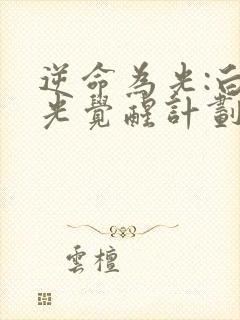 逆命為光:
光覺醒計劃
雲檀